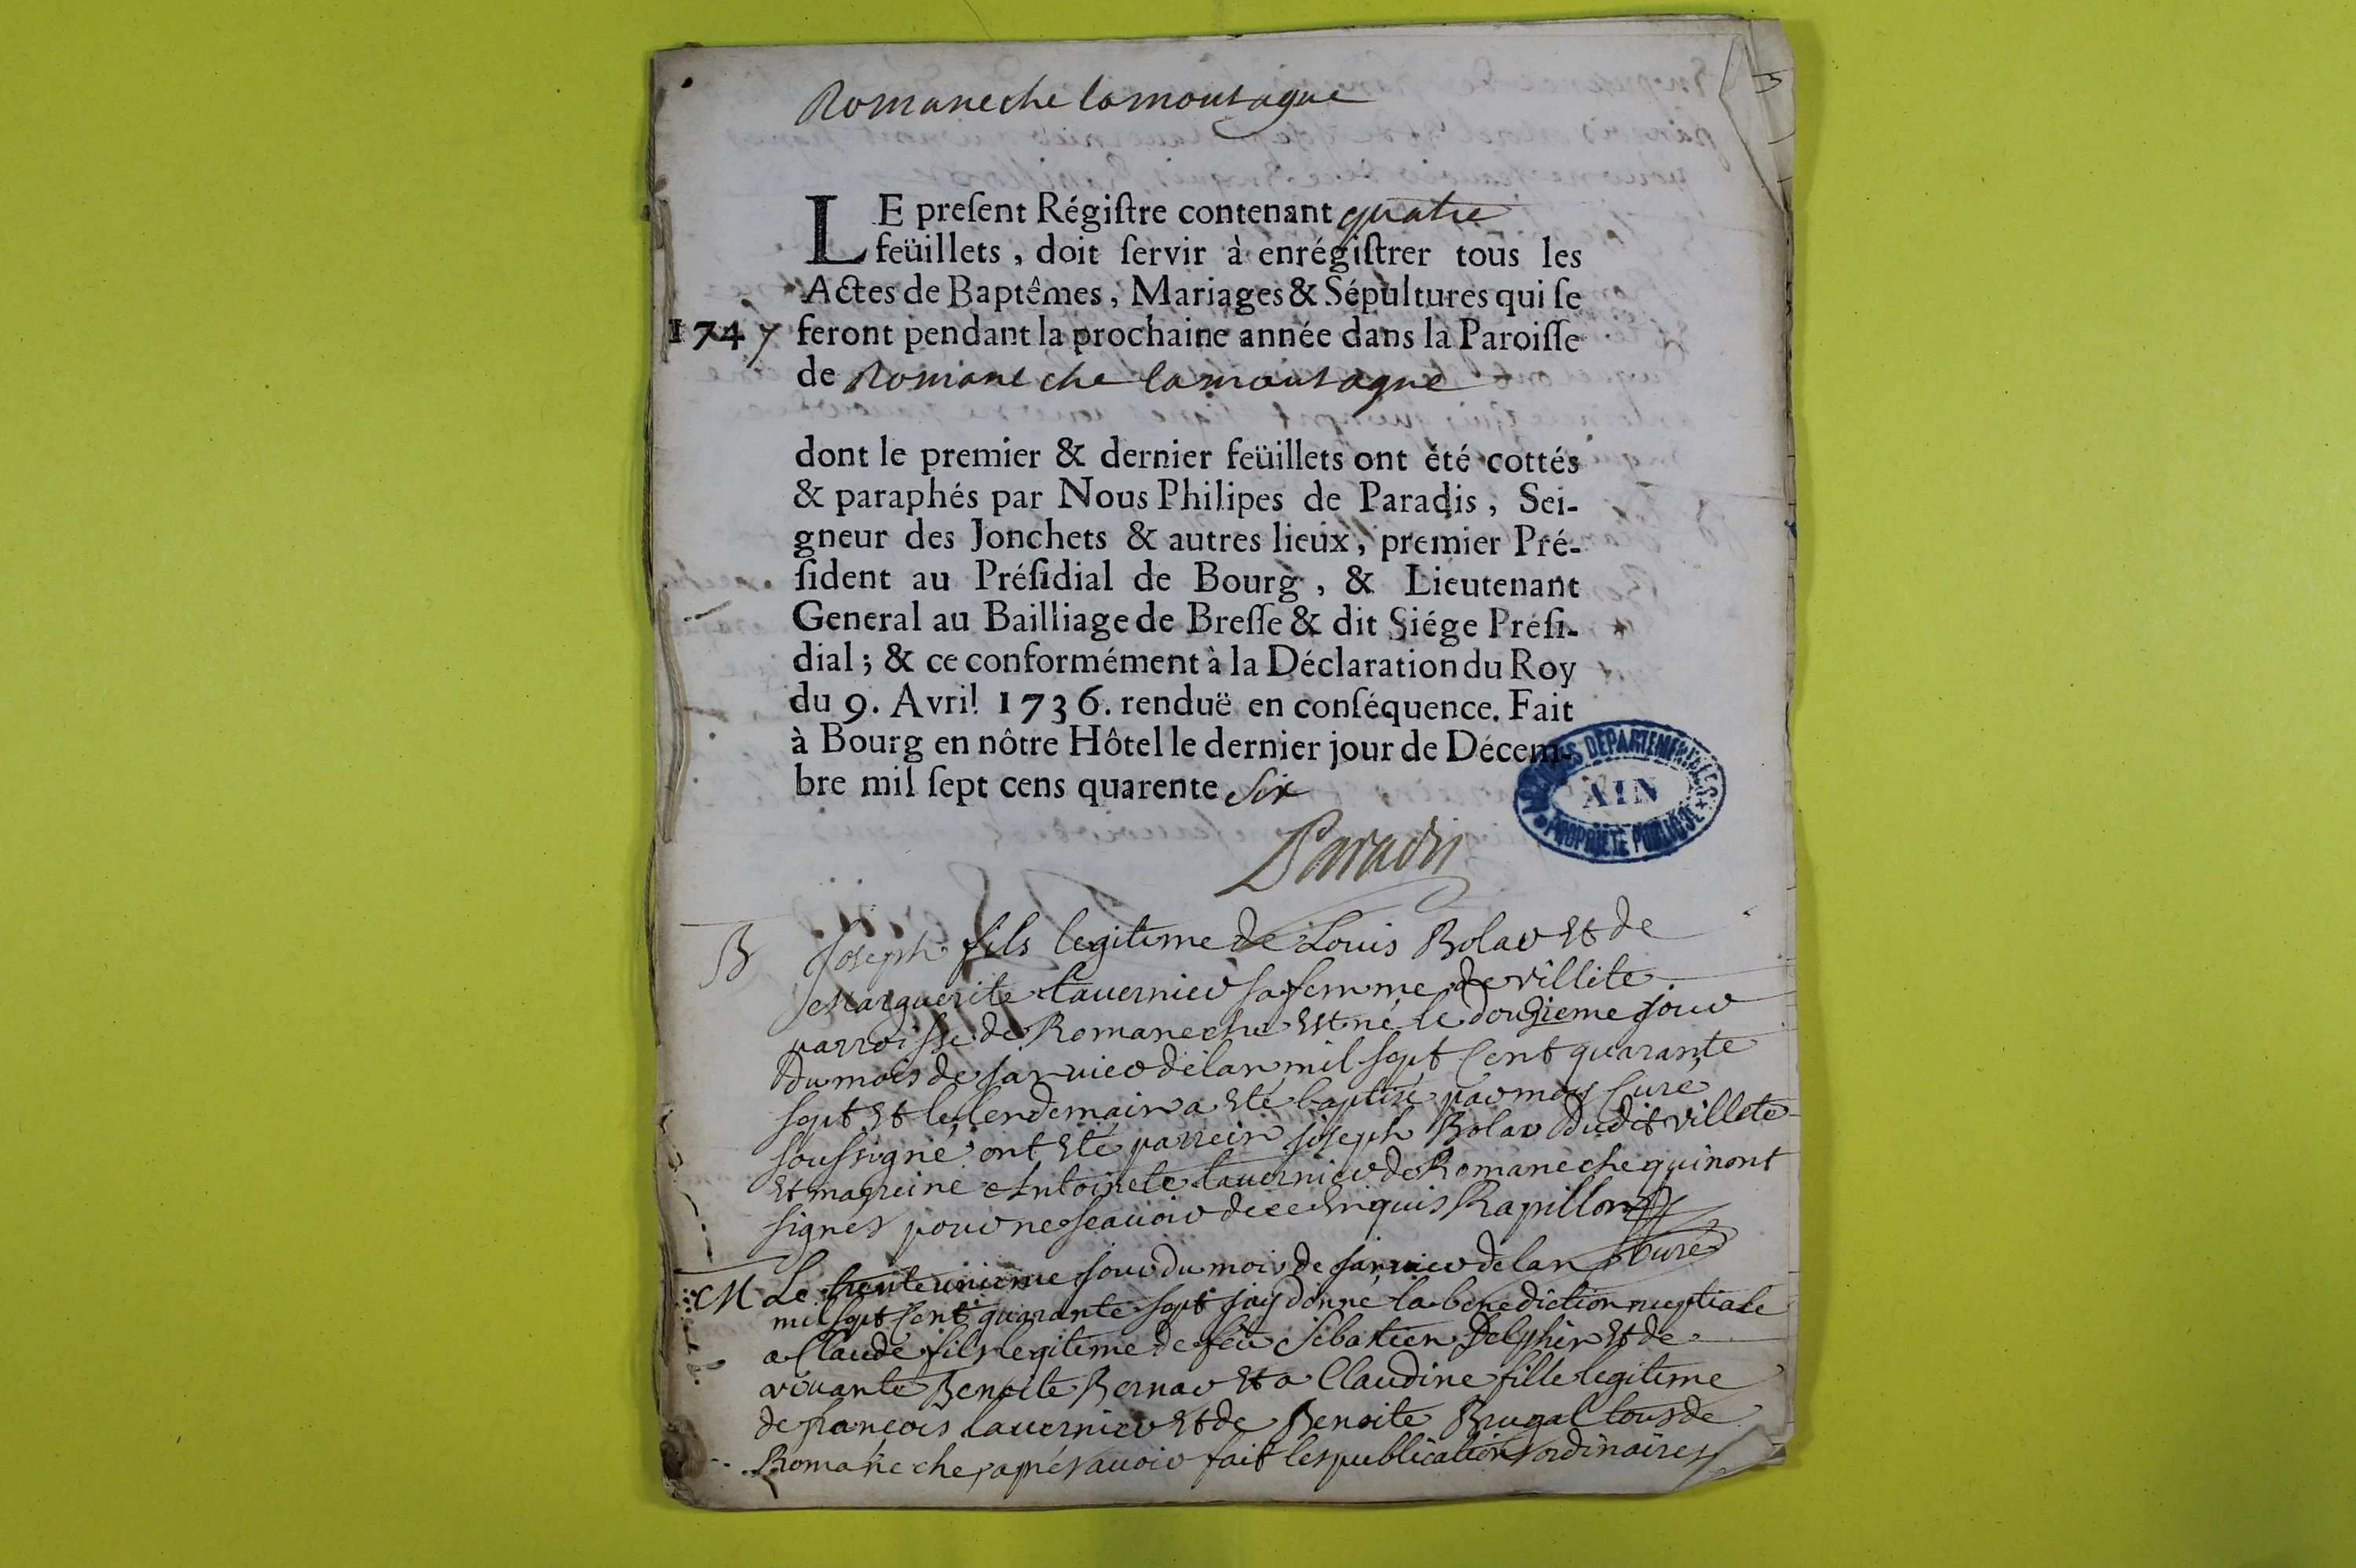 Romaneche lamontagne
LE preſent Régiſtre contenant quatre
feüillets, doit ſervir à enrégiſtrer tous les
Actes de Baptêmes, Mariages & Sépultures qui ſe
1747 feront pendant la prochaine année dans la Paroiſſe
de Romaneche lamontagne
dont le premier & dernier feüillets ont été cottés
& paraphés par Nous Philipes de Paradis, Sei-
gneur des Jonchets & autres lieux, premier Pré-
ſident au Préſidial de Bourg, & Lieutenant
General au Bailliage de Breſſe & dit Siége Préſi-
dial; & ce conformément à la Déclaration du Roy
du 9. Avril 1736. renduë en conſéquence. Fait
à Bourg en nôtre Hôtel le dernier jour de Décem-
bre mil ſept cens quarente six
ARCHIVES DEPARTEMENTALES
AIN
PROPRIETE PUBLIQUE
Paradis
B Joseph fils legitime de Louis Bolar Et de
Marguerite tavernier sa femme de villete
parroisse de Romaneche Est né le douzieme jour
du mois de janvier de lan mil sept Cent quarante
sept Et le lendemain a Eté baptisé par moy Curé
soussigné ont Eté parrein joseph Bolar dudit villete
Et marreine Antoinete tavernier de Romaneche qui nont
signés pour ne sçavoir de ce Enquis Rapillon
Curé
M Le trente unieme jour du mois de janvier de lan
mil sept Cent quarante sept jay donné la benediction nuptiale
a Claude fils legitime de feu Sebastien Delphin Et de
vivante Benoite Bernar Et a Claudine fille legitime
de françois tavernier Et de Benoite Brugal tous de
Romaneche, aprés avoir fait les publications ordinaires